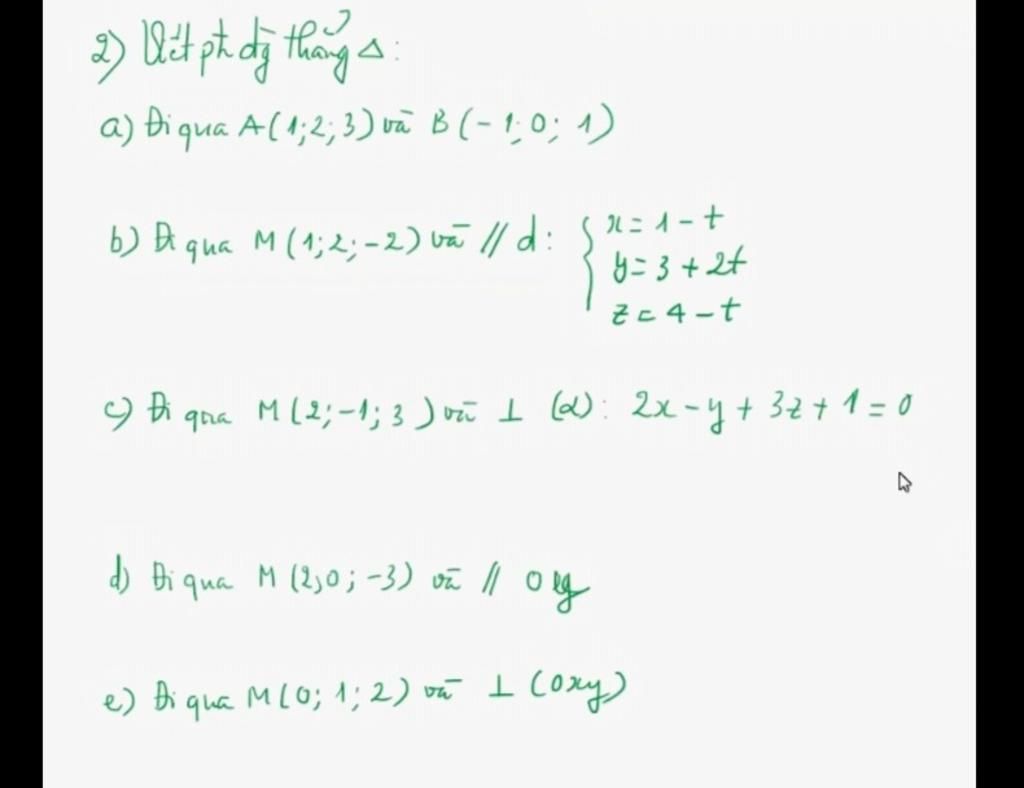 2) Viết pt đg thẳng Δ:
a) Đi qua A(1;2;3) và B(-1;0;1)
b) Đi qua M(1;2;-2) và // d: { x = 1 - t
y = 3 + 2t
z = 4 - t
c) Đi qua M(2;-1;3) và ⊥ (α): 2x - y + 3z + 1 = 0
d) Đi qua M(2,0;-3) và // Oy
e) Đi qua M(0;1;2) và ⊥ (Oxy)